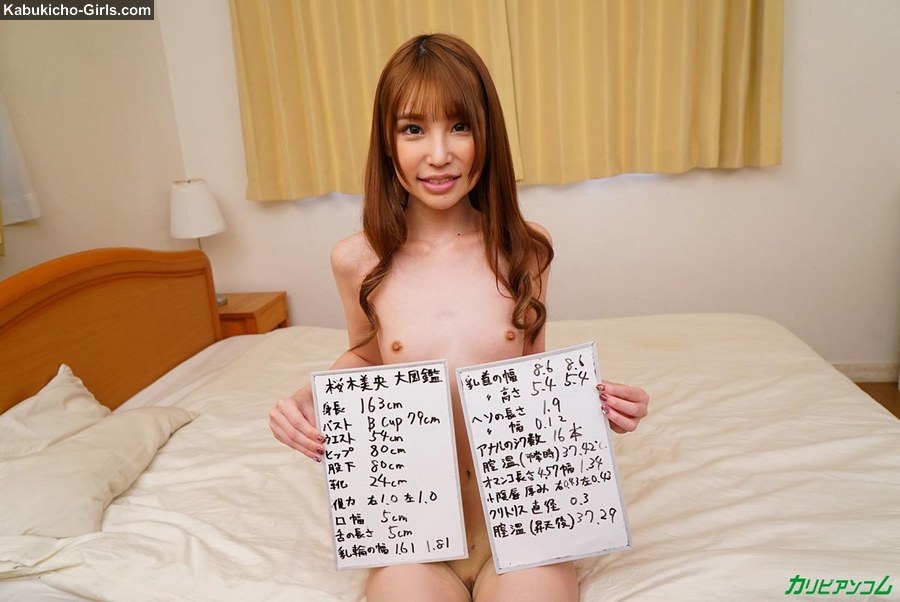 Kabukicho-Girls.com
桜木美央 大図鑑
身長 163cm
バスト B cup 79cm
ウエスト 54cm
ヒップ 80cm
股下 80cm
靴 24cm
視力 右1.0 左1.0
口幅 5cm
舌の長さ 5cm
乳輪の幅 1.61 1.81
乳首の幅 8.6 8.6
〃 高さ 5.4 5.4
ヘソの長さ 1.9
〃 幅 0.12
アナルのシワ数 16本
膣温(平常時) 37.42℃
オマンコ長さ4.57幅 1.34
小陰唇 厚み 右0.43左0.42
クリトリス 直径 0.3
膣温(昇天後) 37.29
カリビアンコム